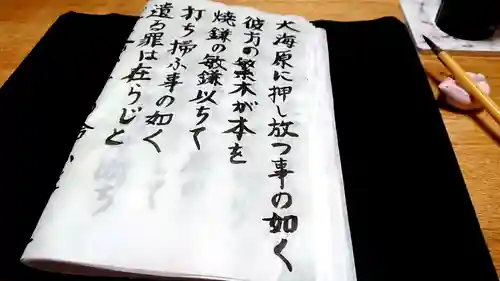 大海原に押し放つ事の如く
彼方の繁木が本を
焼鎌の敏鎌以ちて
打ち掃ふ事の如く
遺る罪は在らじと